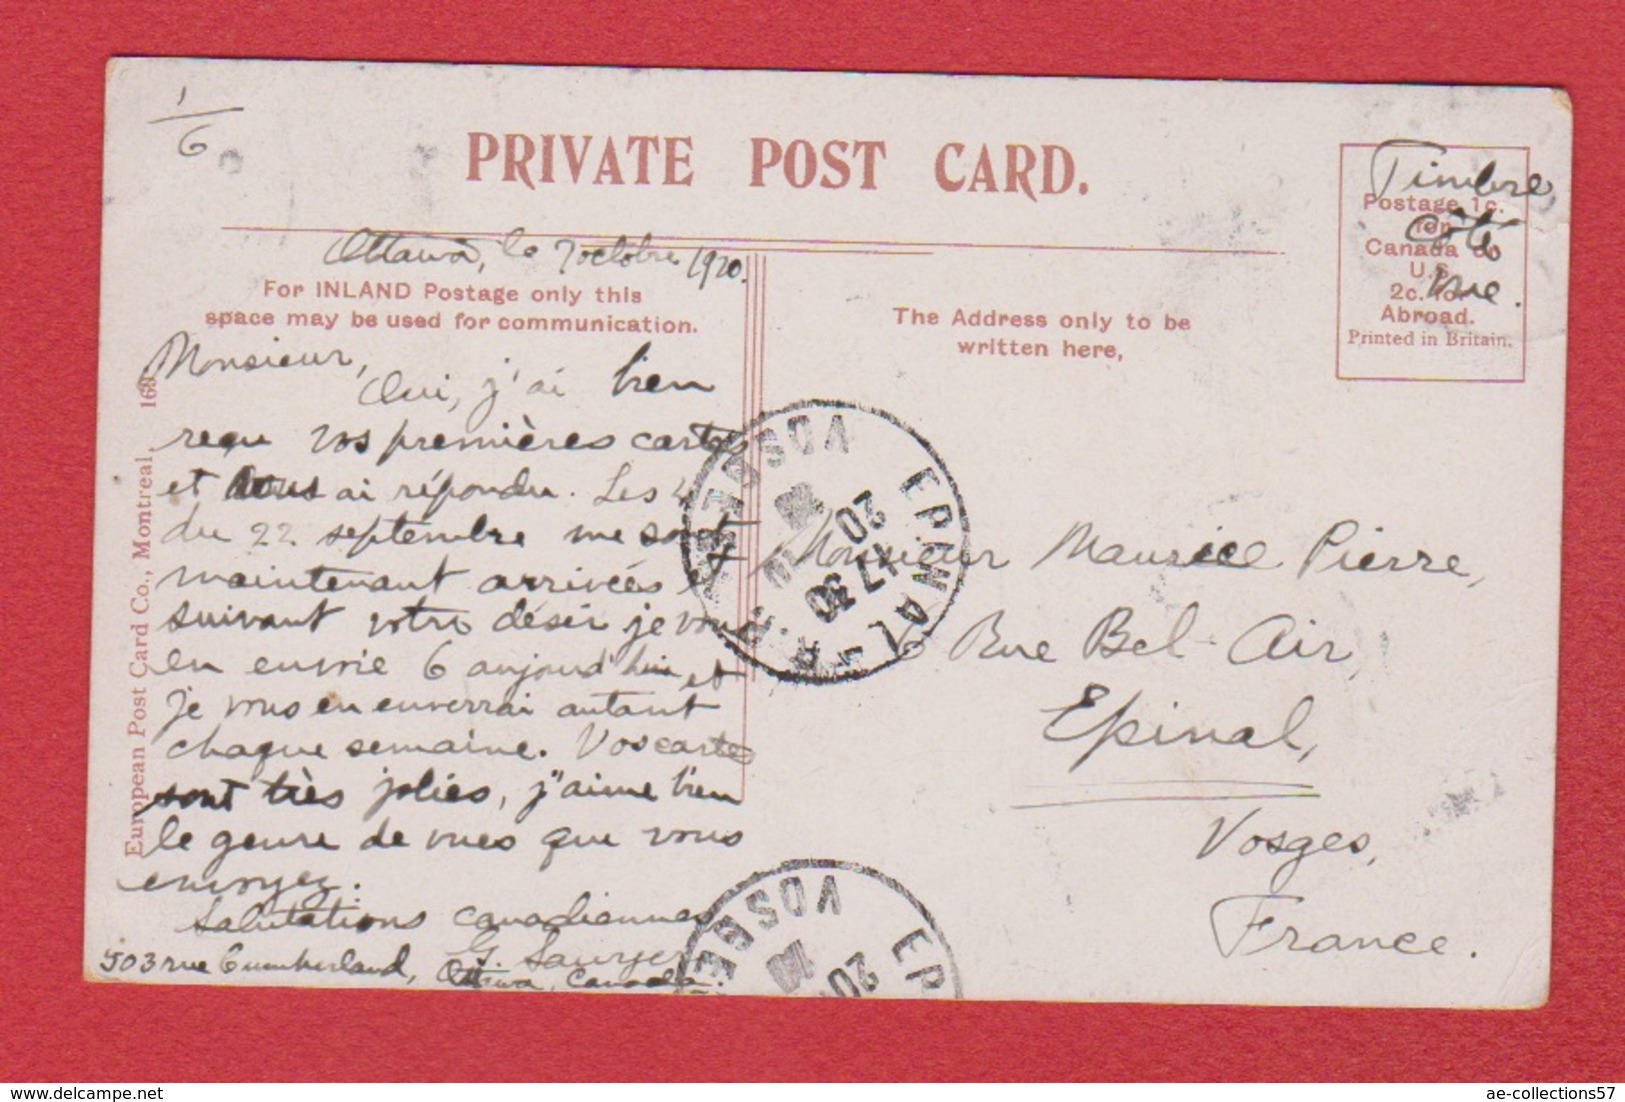 1/6
PRIVATE POST CARD.
Timbre
côté
vue.
Postage 1c.
for
Canada or
U.S.
2c. for
Abroad.
Printed in Britain.
Ottawa, le 7 octobre 1920.
For INLAND Postage only this
space may be used for communication.
The Address only to be
written here,
Monsieur,
Oui, j'ai bien
reçu vos premières cartes
et vous ai répondu. Les 4
du 22 septembre me sont
maintenant arrivées et
suivant votre désir je vous
en envoie 6 aujourd'hui et
je vous en enverrai autant
chaque semaine. Vos cartes
sont très jolies, j'aime bien
le genre de vues que vous
envoyez.
Salutations canadiennes
G. Sawyer
503 rue Cumberland, Ottawa, Canada.
Monsieur Maurice Pierre,
6 Rue Bel-Air,
Epinal,
Vosges,
France.
European Post Card Co., Montreal, 163
EPINAL
VOSGES
17 30
20
EP
VOSGE
20
ae-collections57